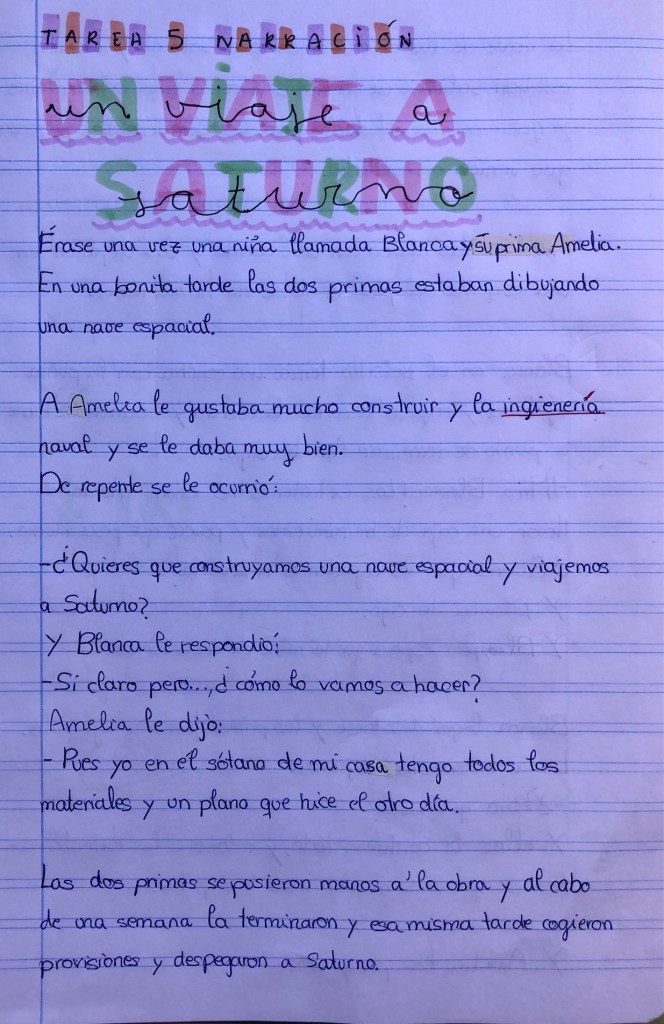 TAREA 5 NARRACIÓN
un viaje a
saturno
Érase una vez una niña llamada Blanca y su prima Amelia.
En una bonita tarde las dos primas estaban dibujando
una nave espacial.
A Amelia le gustaba mucho construir y la ingienería
naval y se le daba muy bien.
De repente se le ocurrió:
-¿Quieres que construyamos una nave espacial y viajemos
a Saturno?
Y Blanca le respondió:
-Si claro pero..., ¿cómo lo vamos a hacer?
Amelia le dijo:
- Pues yo en el sótano de mi casa tengo todos los
materiales y un plano que hice el otro día.
Las dos primas se pusieron manos a la obra y al cabo
de una semana la terminaron y esa misma tarde cogieron
provisiones y despegaron a Saturno.